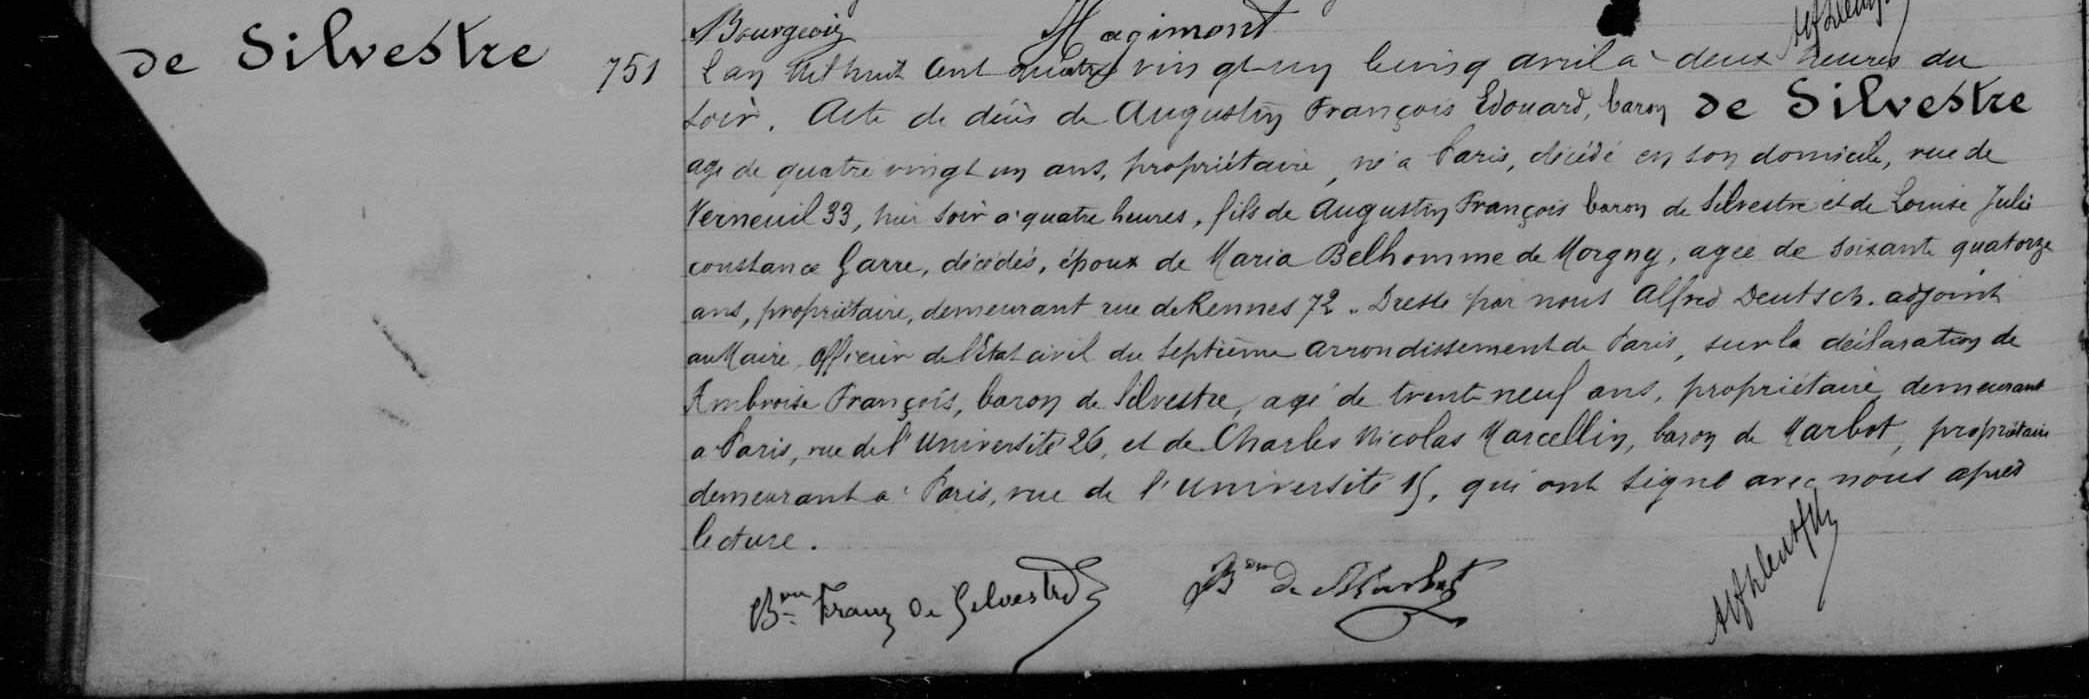 Bourgeois Magimont
de Silvestre 751 L'an Mil huit cent quatre vingt un le cinq avril à deux heures du
soir. Acte de décès de Augustin François Edouard, baron de Silvestre
agé de quatre vingt un ans, propriétaire, né à Paris, décédé en son domicile, rue de
Verneuil 33, hier soir à quatre heures, fils de Augustin François baron de Silvestre et de Louise Julie
constance Garre, décédés, époux de Maria Belhomme de Morgny, agée de soixante quatorze
ans, propriétaire, demeurant rue de Rennes 72. Dressé par nous Alfred Deutsch. adjoint
au Maire, officier de l'Etat civil du septième arrondissement de Paris, sur la déclaration de
Ambroise François, baron de Silvestre, agé de trente neuf ans, propriétaire demeurant
à Paris, rue de l'Université 26, et de Charles Nicolas Marcellin, baron de Marbot, propriétaire
demeurant à Paris, rue de l'Université 15, qui ont signé avec nous après
lecture.
Bon Franz de Silvestre Bon de Marbot Alf Deutsch